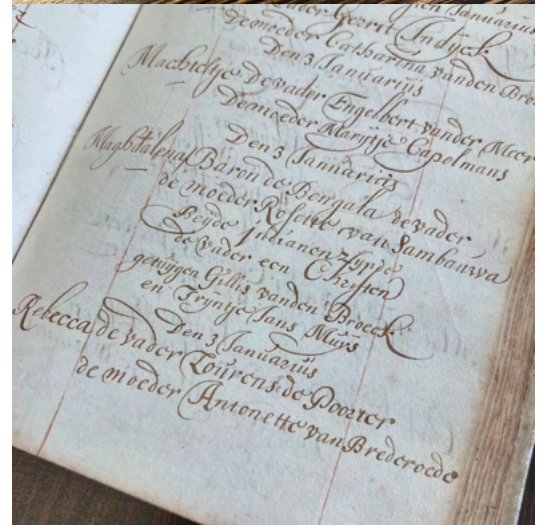 vader Gerrit Indijck
Januarius
de moeder Catharina vanden Bro
Den 3 Januarius
Machieltje De vader Engelbert vander Meer
De moeder Marijtje Capelmans
Den 3 Januarius
Maghdalena Baron de Bengala de vader,
de moeder Rosette van Sambauwa
Beyde Indianen zynde
de Vader een Christen
getuijgen Gillis vanden Broeck
en Tryntje Jans Muijs
Den 3 Januarius
Rebecca de vader Lourens de Poorter
de moeder Antonette van Brederoede